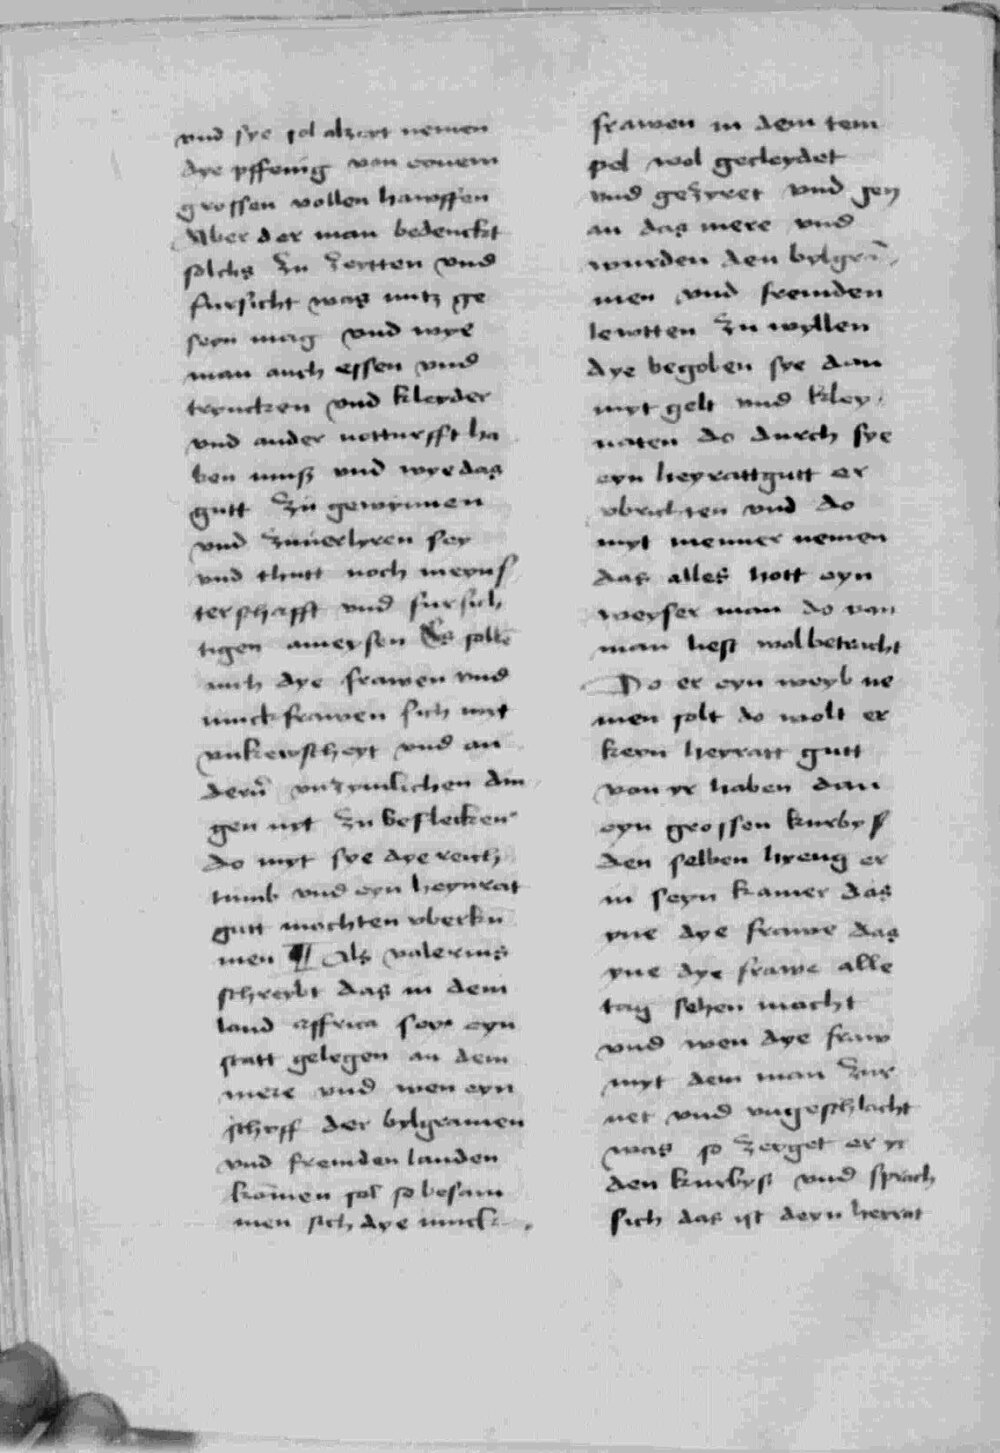 vnd sye sol alzeyt nemen
dye pffenig von eynem
grossen vollen hawffen
Aber der man bedenckt
solchs zu zeytten vnd
fursicht was nutz ge
seyn mag vnd wye
man auch essen vnd
tryncken vnd kleyder
vnd ander notturfft ha
ben muß vnd wye das
gutt zu gewynnen
vnd zuuerlyren sey
vnd thutt noch meyns
terschafft vnd fursich
tigen ameysen Es solle
auch dye frawen vnd
iunckfrawen sich mit
vnkewscheyt vnd an
dern̄ vnzymlichen din
gen nyt zu beflecken
do myt sye dye reich
tumb vnd eyn heyrat
gutt mochten vberku
men ¶ Als valerius
schreybt das in dem
land affrica sey eyn
statt gelegen an dem
mere vnd wen eyn
schyff der bylgramen
vnd fremden landen
komen sol so besam
men sich dye iunck
frawen in dem tem
pel wol gecleydet
vnd gezyret vnd gen
an das mere vnd
wurden den bylgra
men vnd fremden
lewtten zu wyllen
dye begoben sye dan
myt gelt vnd kley
naten do durch sye
eyn heyrattgutt er
vbrichten vnd do
myt menner nemen
das alles hott eyn
weyser man do von
man liest wol betracht
Do er eyn weyb ne
men solt do wolt er
keyn heyratt gutt
von yr haben dan
eyn grossen kurbys
den selben hyeng er
in seyn kamer das
yne dye frawe das
yne dye frawe alle
tag sehen macht
vnd wen dye fraw
myt dem man zur
net vnd vngeschlacht
was so zeyget er yr
den kurbyß vnd sprach
sich das ist deyn heyrat